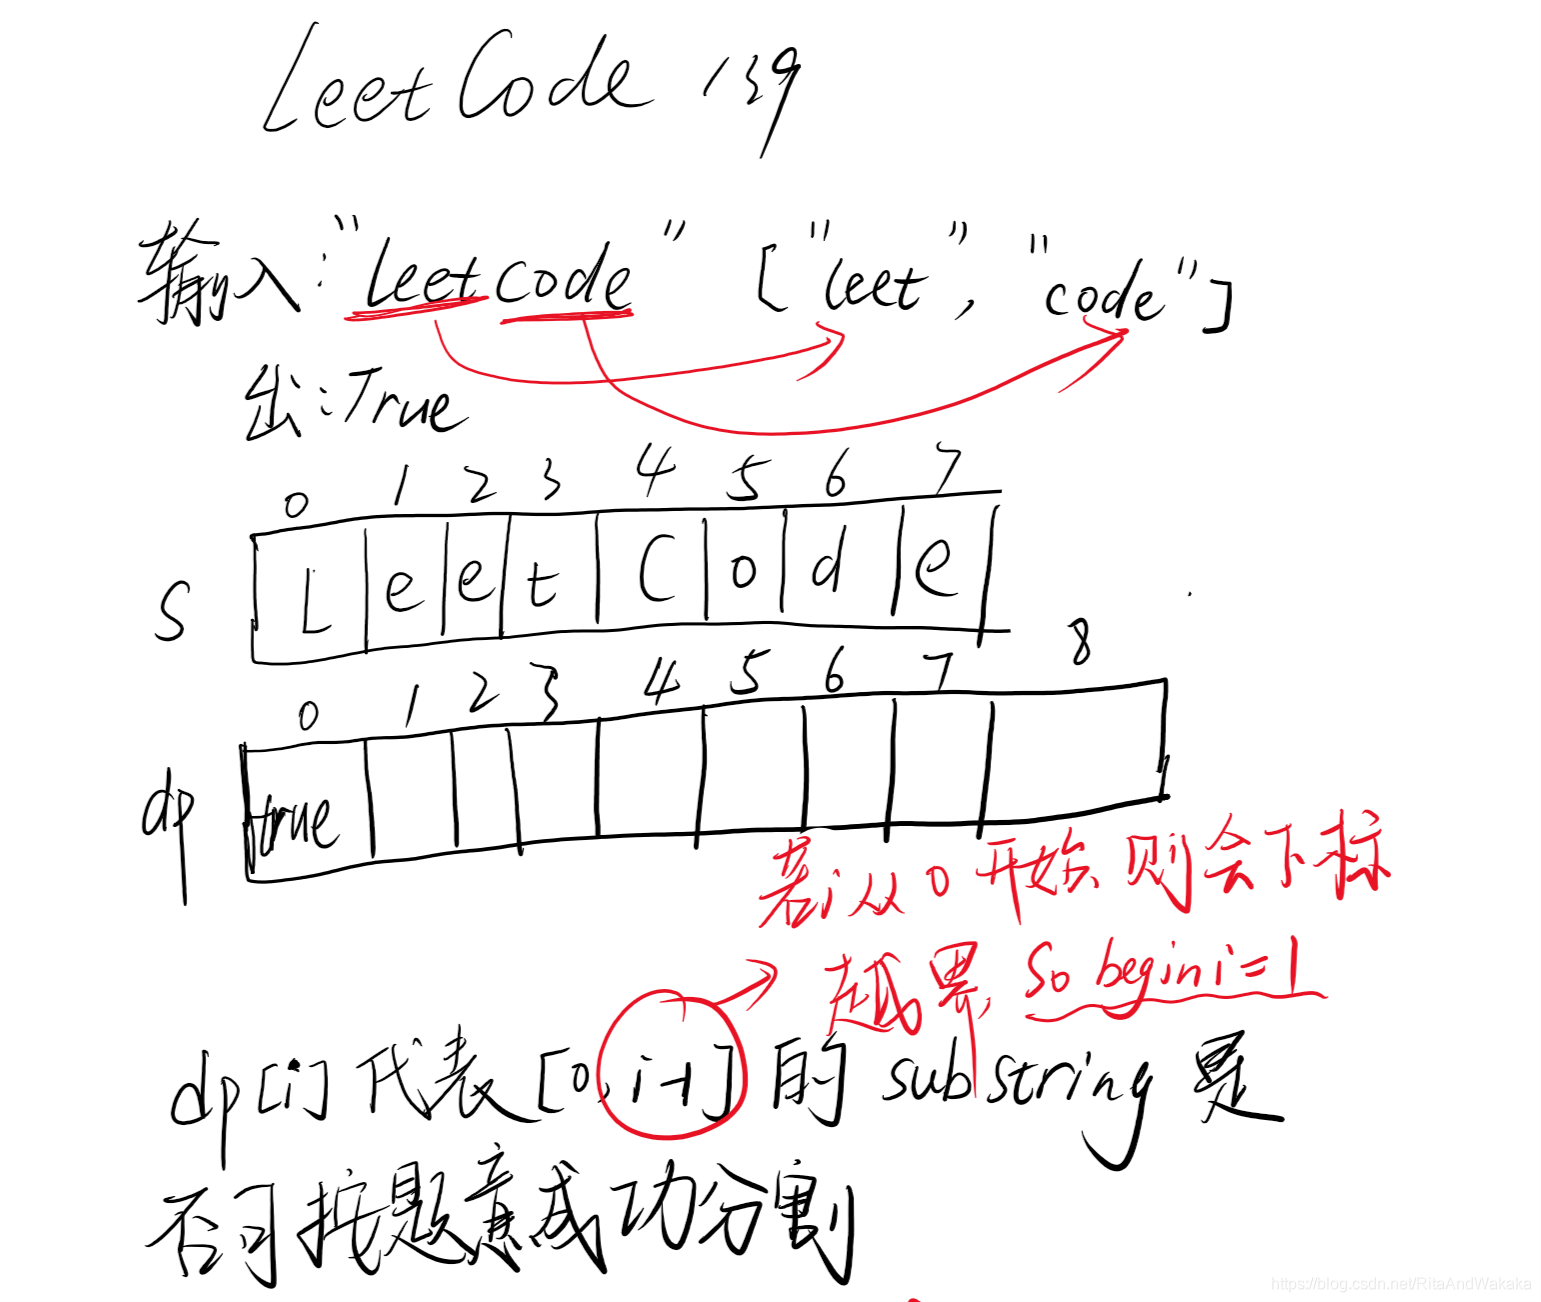 LeetCode 139
输入:"leetcode" ["leet", "code"]
出:True
0 1 2 3 4 5 6 7
S L e e t C o d e
0 1 2 3 4 5 6 7 8
dp true
若i从0开始则会下标
越界, So begin i=1
dp[i]代表[0,i-1]的substring是
否可按题意成功分割
https://blog.csdn.net/RitaAndWakaka